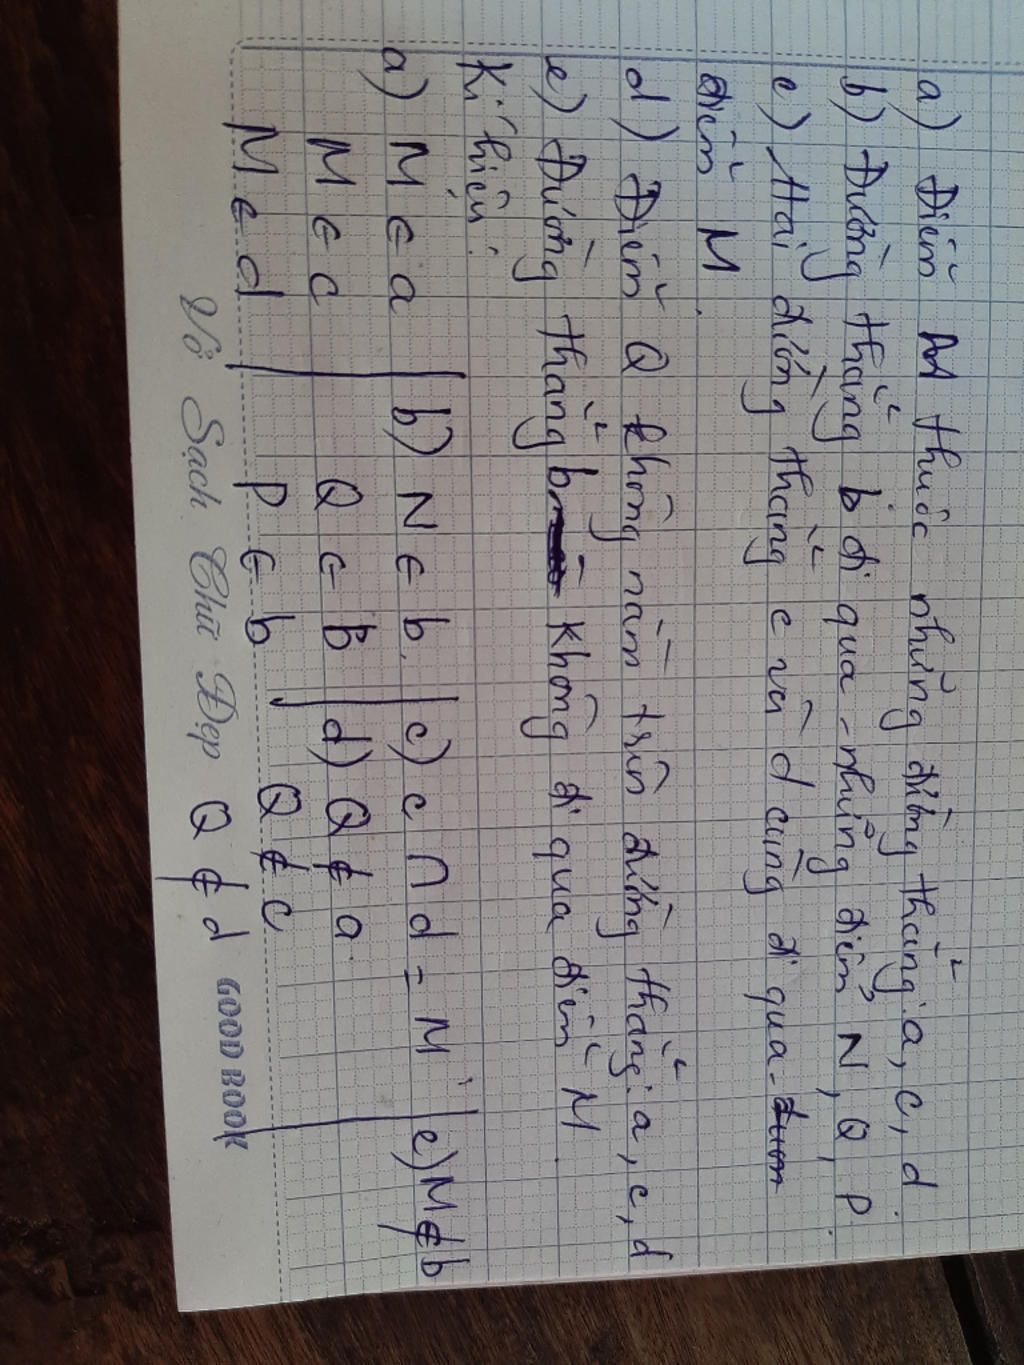 a) Điểm M thuộc những đường thẳng: a, c, d.
b) Đường thẳng b đi qua những điểm N, Q, P.
c) Hai đường thẳng c và d cùng đi qua
điểm M.
d) Điểm Q không nằm trên đường thẳng: a, c, d
e) Đường thẳng b không đi qua điểm M.
Kí hiệu:
a) M ∈ a | b) N ∈ b. | c) c ∩ d = M. | e) M ∉ b
M ∈ c Q ∈ b | d) Q ∉ a.
M ∈ d | P ∈ b | Q ∉ c
Q ∉ d
Vở Sạch Chữ Đẹp GOOD BOOK